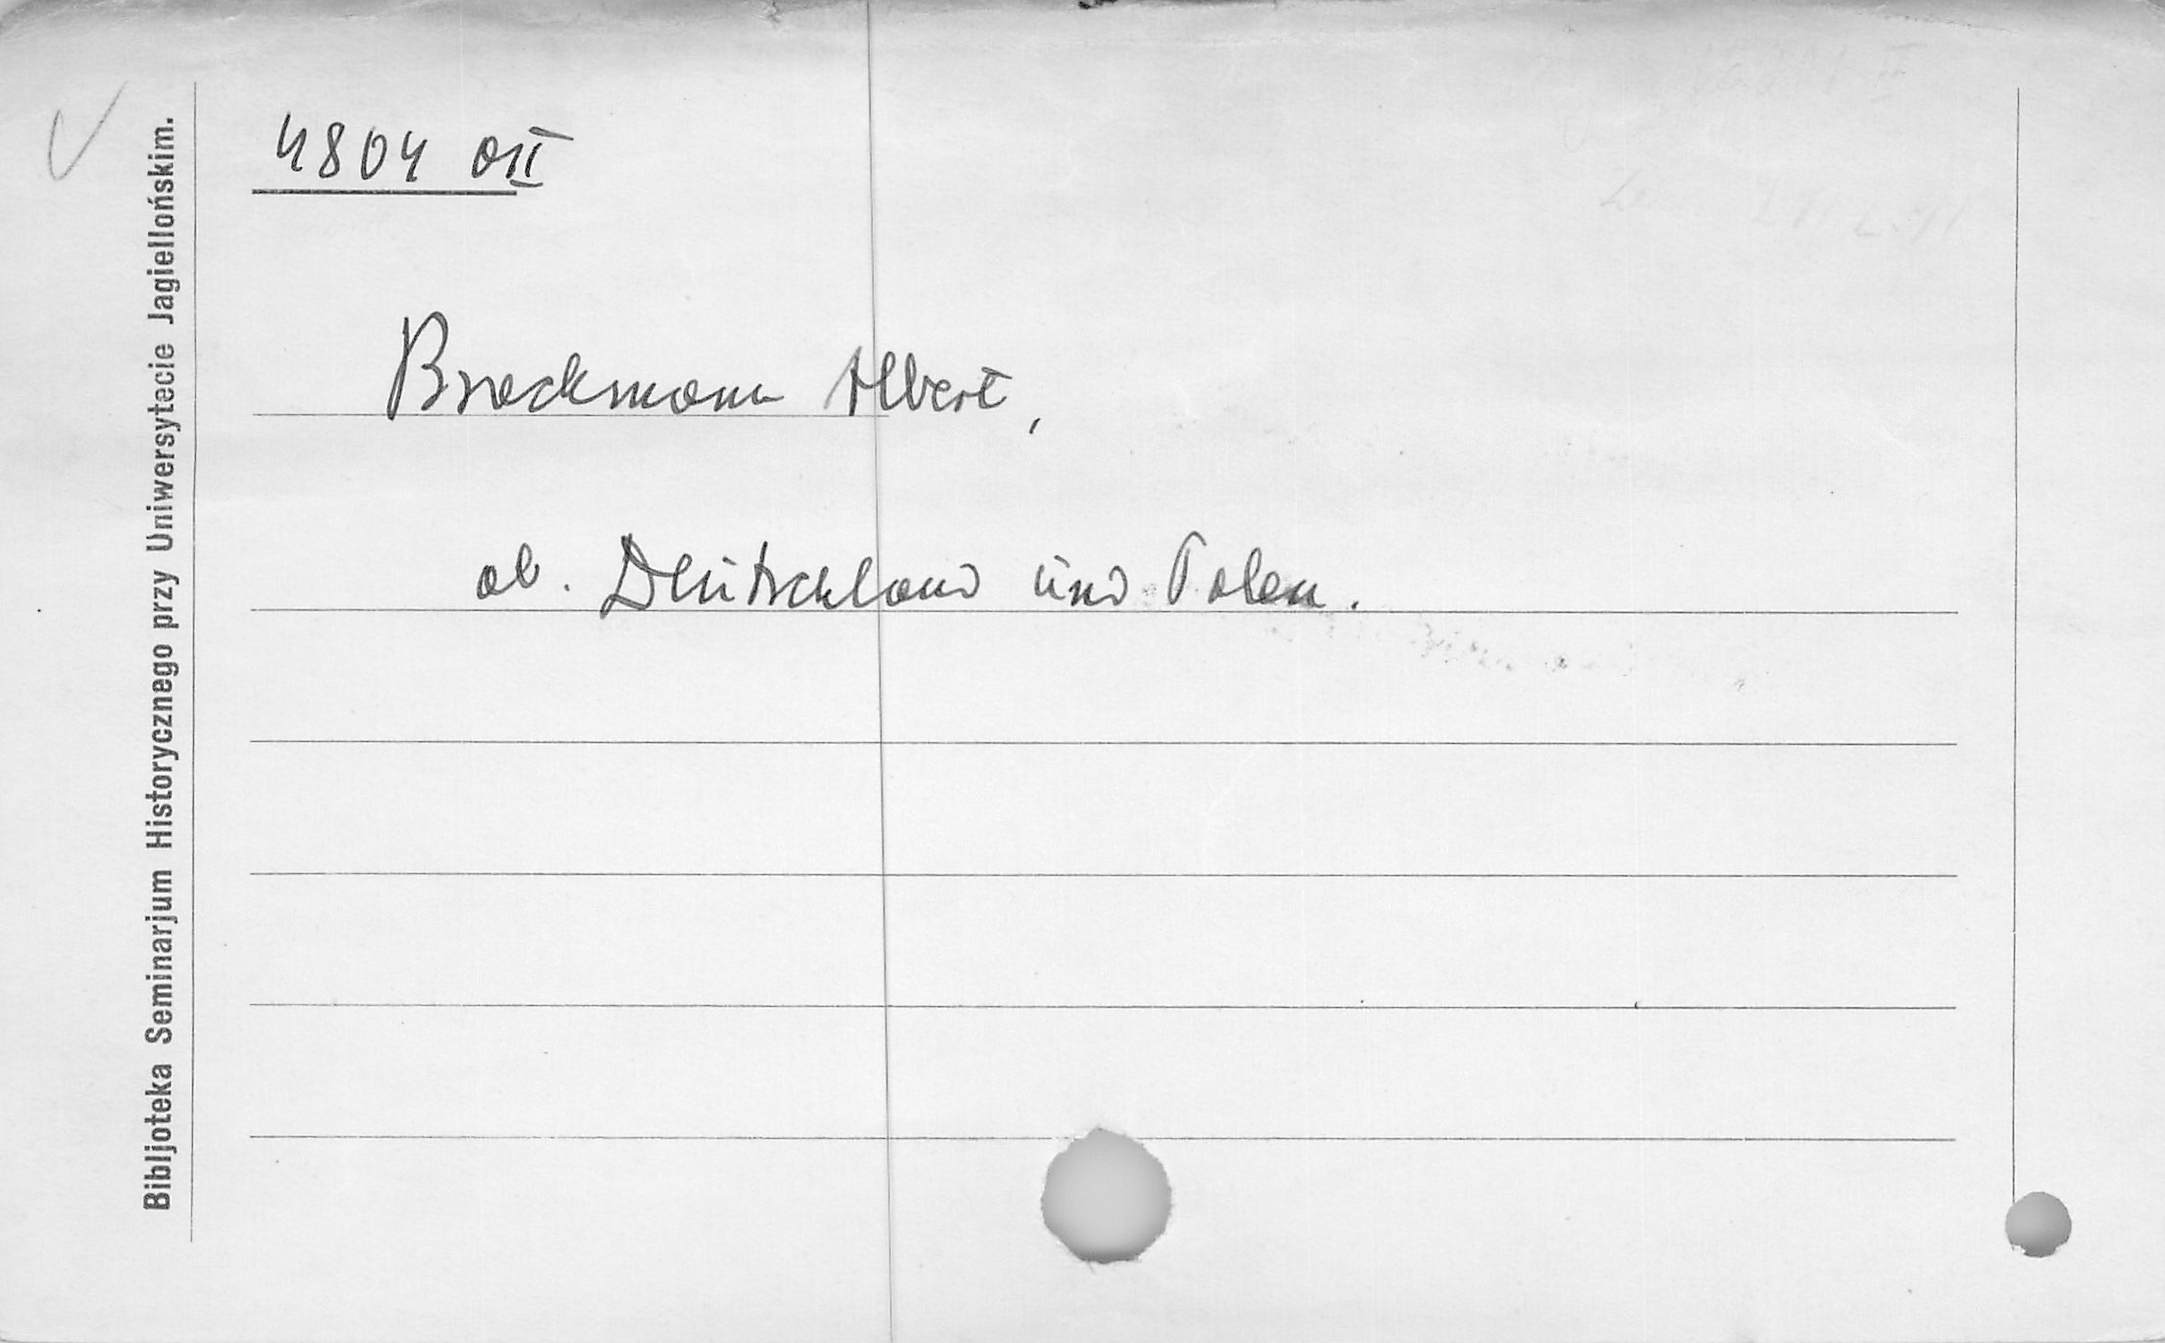 4804 o II
Brackmann Albert,
ob. Deutschland und Polen.
Bibljoteka Seminarjum Historycznego przy Uniwersytecie Jagiellońskim.